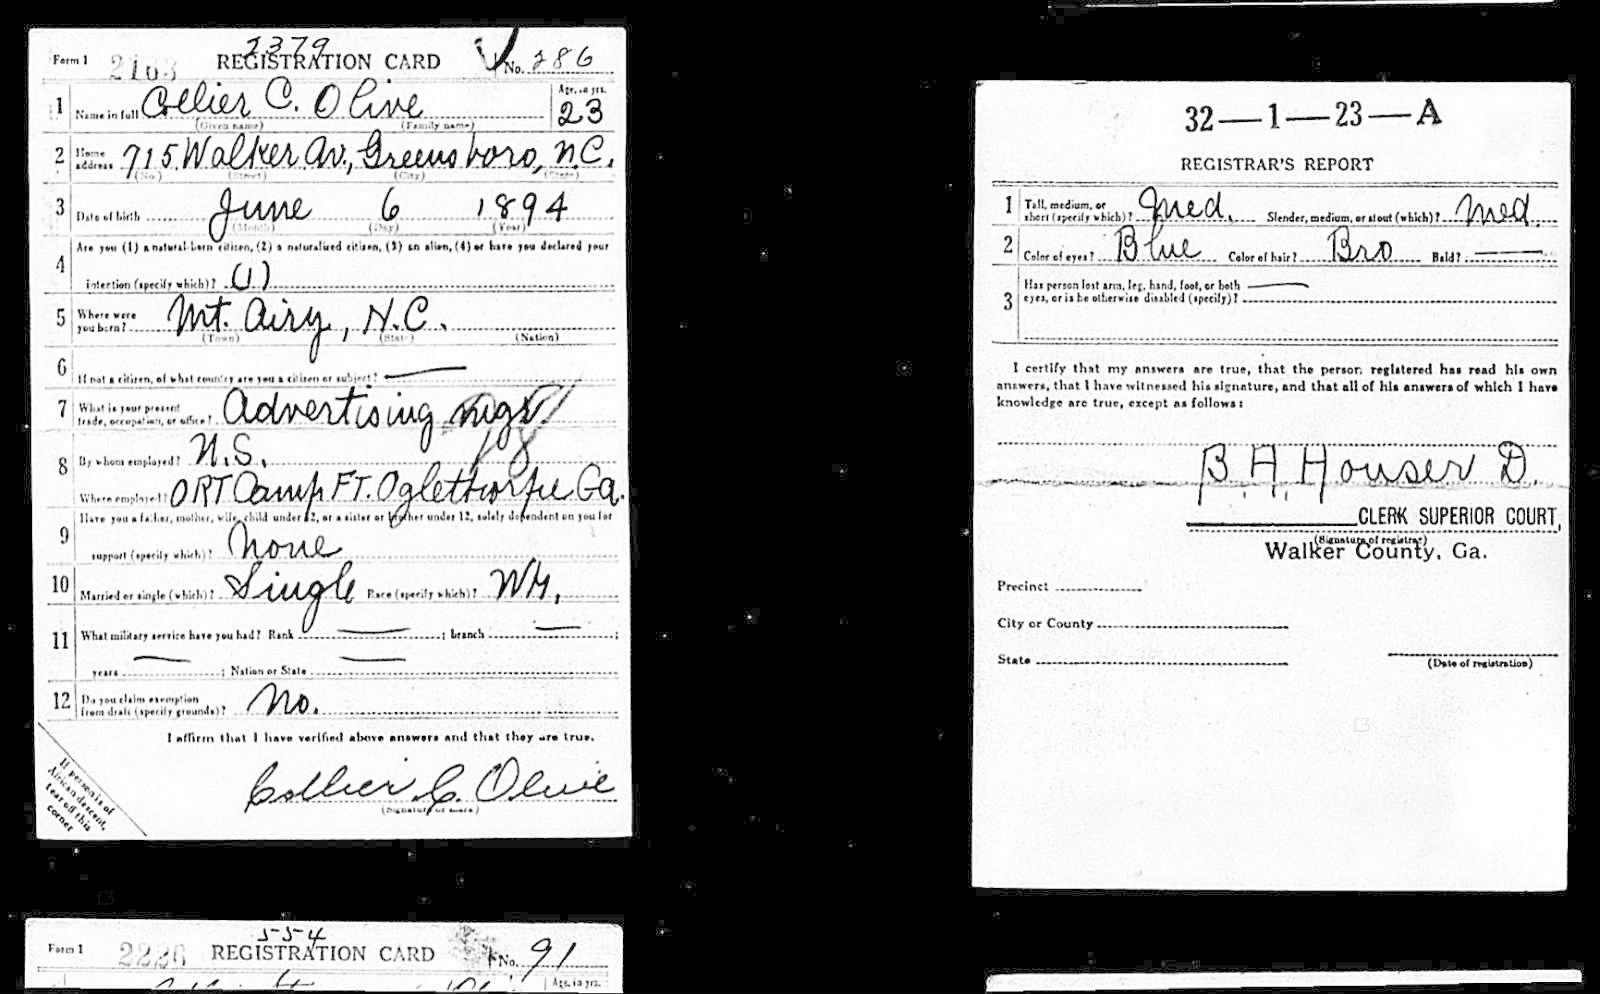 2379
Form 1 2163 REGISTRATION CARD No. 286
1 Name in full Collier C. Olive Age, in yrs. 23
(Given name) (Family name)
2 Home address 715 Walker Av., Greensboro, N.C.
(No.) (Street) (City) (State)
3 Date of birth June 6 1894
(Month) (Day) (Year)
4 Are you (1) a natural-born citizen, (2) a naturalized citizen, (3) an alien, (4) or have you declared your
intention (specify which)? (1)
5 Where were you born? Mt. Airy, N.C.
(Town) (State) (Nation)
6 If not a citizen, of what country are you a citizen or subject?
7 What is your present trade, occupation, or office? Advertising mgr.
8 By whom employed? U.S.
Where employed? ORT Camp Ft. Oglethorpe Ga.
9 Have you a father, mother, wife, child under 12, or a sister or brother under 12, solely dependent on you for
support (specify which)? None
10 Married or single (which)? Single Race (specify which)? Wh.
11 What military service have you had? Rank ; branch ;
years ; Nation or State
12 Do you claim exemption from draft (specify grounds)? No.
I affirm that I have verified above answers and that they are true.
Collier C. Olive
If person is of
African descent,
tear off this
corner
32—1—23—A
REGISTRAR'S REPORT
1 Tall, medium, or short (specify which)? Med. Slender, medium, or stout (which)? Med.
2 Color of eyes? Blue Color of hair? Bro Bald?
3 Has person lost arm, leg, hand, foot, or both
eyes, or is he otherwise disabled (specify)?
I certify that my answers are true, that the person registered has read his own
answers, that I have witnessed his signature, and that all of his answers of which I have
knowledge are true, except as follows:
B. H. Houser D.
CLERK SUPERIOR COURT,
(Signature of registrar)
Walker County, Ga.
Precinct
City or County
State
(Date of registration)
554
Form 1 2226 REGISTRATION CARD No. 91
Age, in yrs.